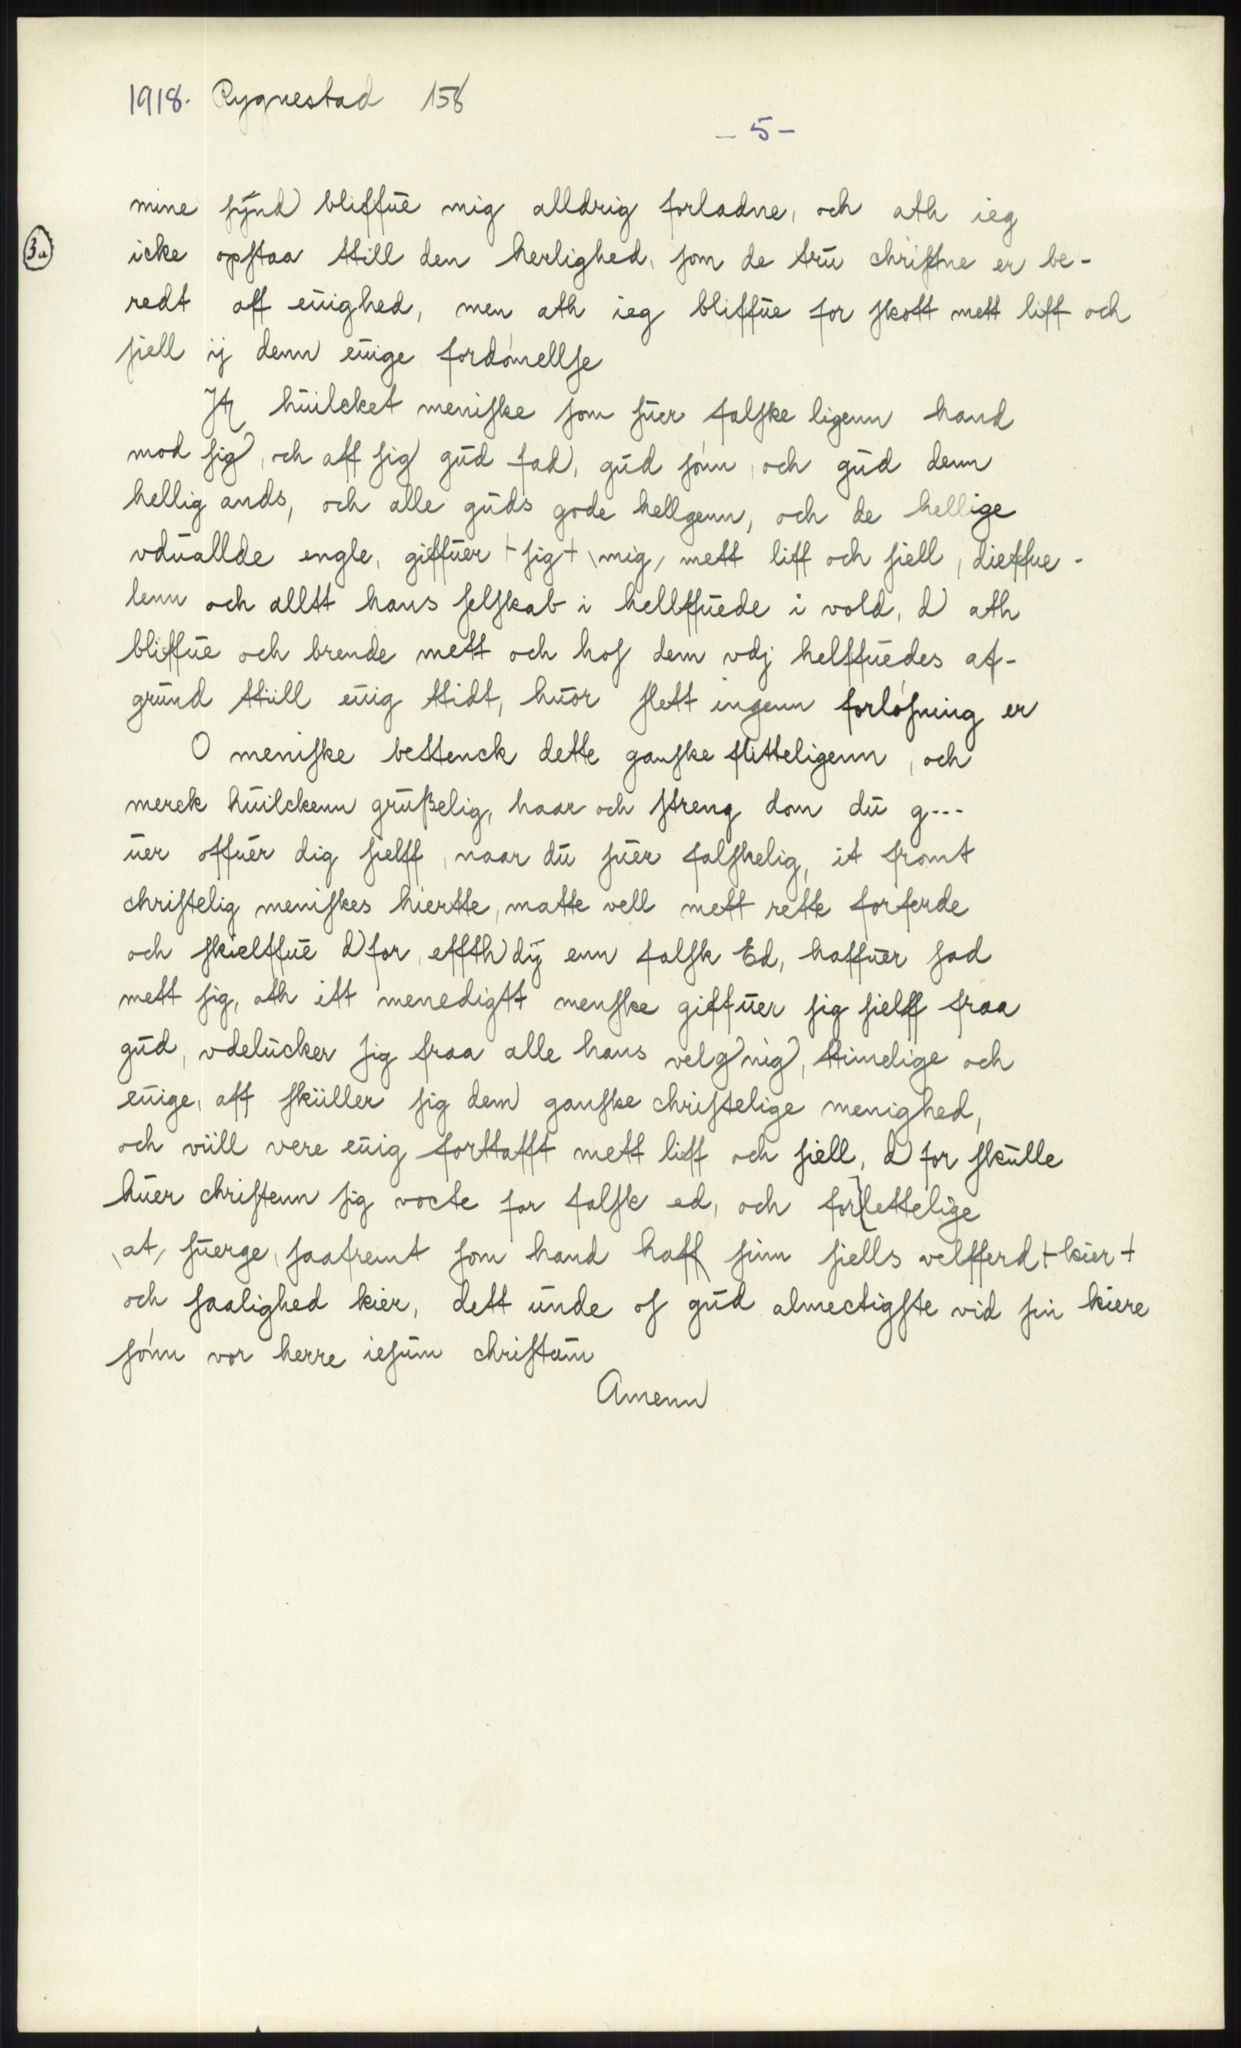 1918. Rygnestad 158
- 5 -
mine ſÿnd bliffūe mig alldrig forladne, och ath ieg
3a
icke opſtaa ttill den herlighed, ſom de trū chriſtne er be-
redt aff eūighed, men ath ieg bliffūe for ſkott mett liff och
ſiell ij denn eūige fordómellſe
It hūilcket meniſke ſom ſūer falſke ligenn hand
mod ſig, och aff ſig gūd fad, gūd ſónn, och gūd denn
hellig ands, och alle gūds gode hellgenn, och de hellige
vdūallde engle, giffūer + ſig + \mig/ mett liff och ſiell, dieffue-
lenn och alltt hans ſelſkab i hellffūede i vold, d ath
bliffūe och brende mett och hoſ dem vdj helffūedes af-
grūnd ttiill eūig ttidt, hūor ſlett ingenn forlóſning er
O meniſke bettenck dette ganſke flitteligenn, och
merck hūilckenn grūßelig, haar och ſtreng dom dū g---
ūer offūer dig ſielff, naar dū ſūer falſkelig, it fromt
chriſtelig meniſkes hiertte, matte vell mett rette forferde
och ſkielffūe d for, effth dÿ enn falſk Ed, haffūer ſad
mett ſig, ath itt menedigtt menſke giffūer ſig ſielff fraa
gūd, vdelūcker ſig fraa alle hans velg nig, ttimelige och
eūige, aff ſkiiller ſig dem ganſke chriſtelige menighed,
och viill vere eūig forttafft mett liff och ſiell, d for ſkūlle
hūer chriſtenn ſig vocte for falſk ed, och for]lettelige
\at/ ſūerge, ſaafremt ſom hand haff ſinn ſiells velfferd + kier +
och ſaalighed kier, dett ūnde oſ gūd almectigſte vid ſin kiere
ſónn vor herre ieſūm chriſtūm
Amenn